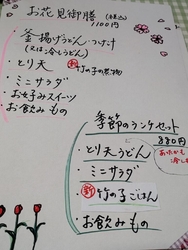 お花見御膳 (税込)
1100円
・釜揚げうどん・つけ汁
(又は冷しうどん)
・とり天 ㊙竹の子の煮物
・ミニサラダ
・お好みスイーツ
・お飲みもの
季節のランチセット
880円
・とり天うどん
・ミニサラダ
・新 竹の子ごはん
・お飲みもの